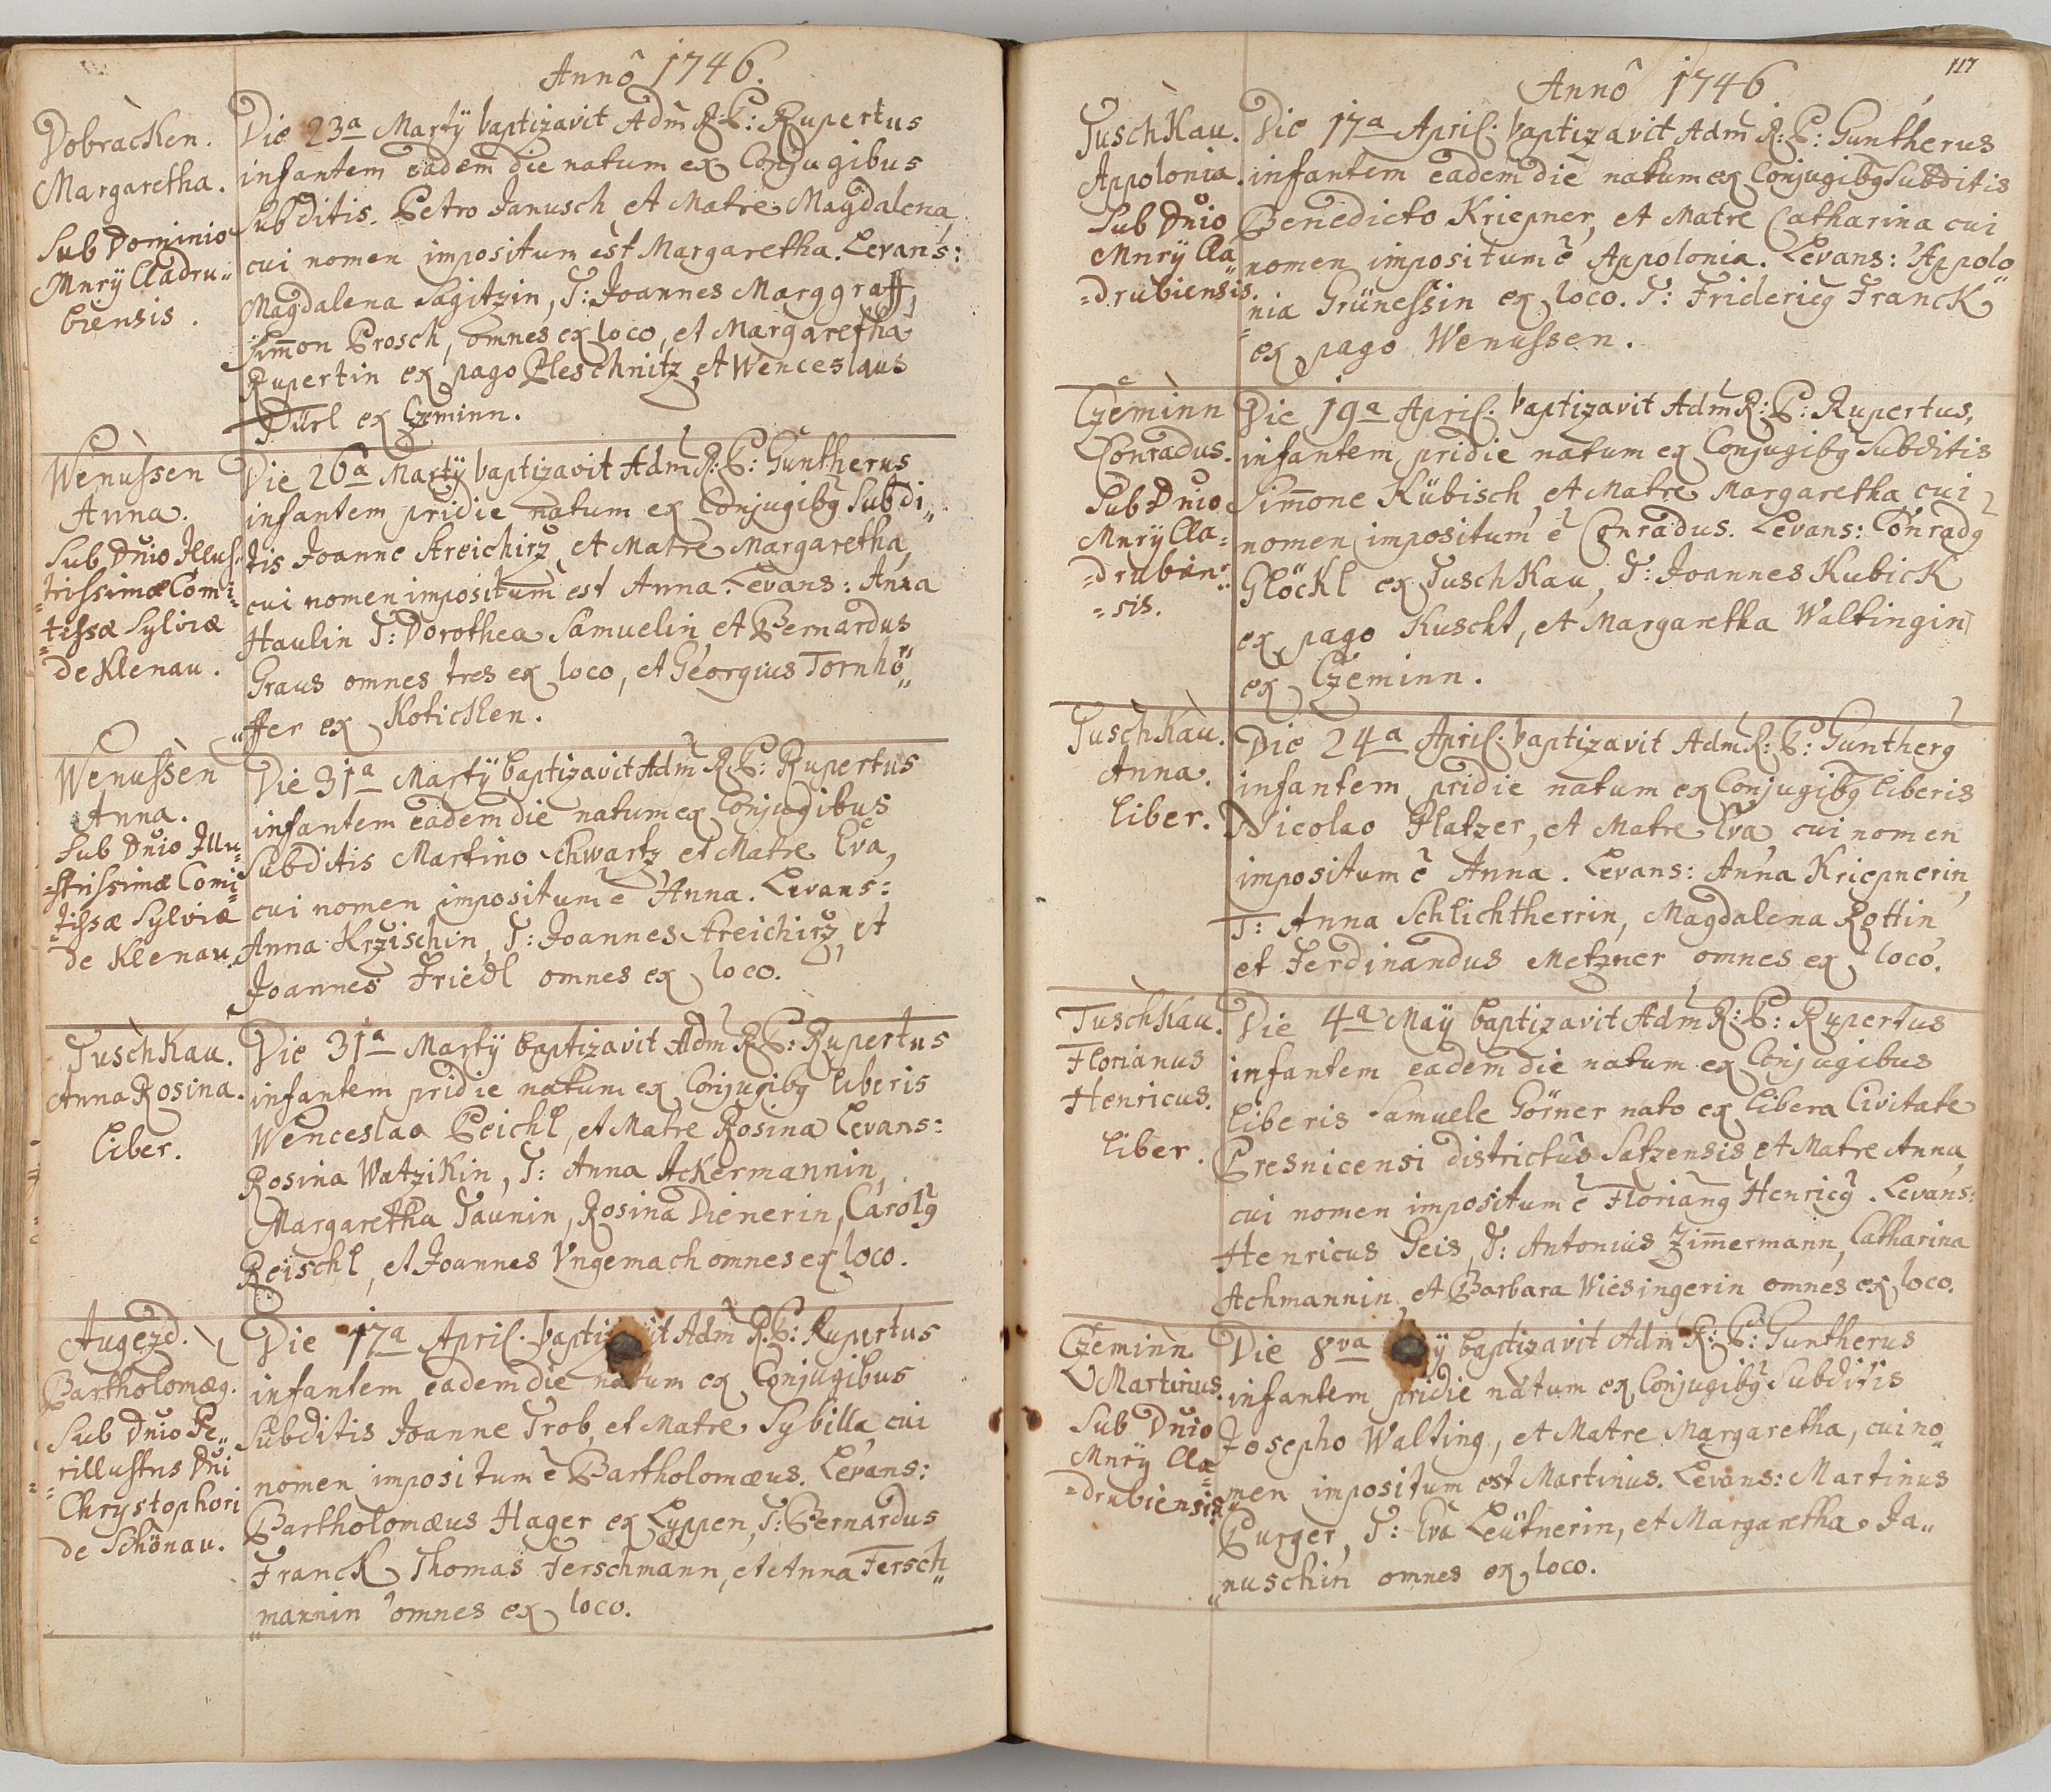 Annô 1746.
Dobracken.
Margaretha.
Sub Dominio
Mnrÿ Cladru„
biensis.
Die 23ª Martÿ baptizavit Adm R: P: Rupertus
infantem eadem die natum ex Conjugibus
Subditis. Petro Janusch et Matre Magdalena,
cui nomen impositum est Margaretha. Levans:
Magdalena Sagitzin, T: Joannes Marggraff,
Sim̄on Prosch, omnes ex loco, et Margaretha
Rupertin ex pago Pleschnitz, et Wenceslaus
Dürl ex Czeminn.
Wenussen
Anna.
Sub Dnio Illus„
=trissimæ Comi=
=tissæ Sylviæ
de Klenau.
Die 26ª Martÿ baptizavit Adm R: P: Guntherus
infantem pridie natum ex Conjugibg Subdi„
tis Joanne Streichirz, et Matre Margaretha,
cui nomen impositum est Anna. Levans: Anna
Haulin T: Dorothea Samuelin, et Bernardus
Graus omnes tres ex loco, et Georgius Tornhö„
„ffer ex Koticken.
Wenussen
Anna.
Sub Dnio Illu=
=strissimæ Comi=
=tissæ Sylviæ
de Klenau.
Die 31ª Martÿ baptizavit Adm R: P: Rupertus
infantem eadem die natum ex Conjugibus
Subditis Martino Schwartz et Matre Eva,
cui nomen impositum ē Anna. Levans:
Anna Krzischin, T: Joannes Streichirz, et
Joannes Friedl omnes ex loco.
Tuschkau.
Anna Rosina.
Liber.
Die 31ª Martÿ baptizavit Adm R: P: Rupertus
infantem pridie natum ex Conjugibg liberis
Wenceslao Peichl, et Matre Rosina Levans:
Rosina Watzikin, T: Anna Ackermannin,
Margaretha Taunin, Rosina Dienerin, Carolg
Reischl, et Joannes Vngemach omnes ex loco.
Augezd.
Bartholomæg.
Sub Dnio Pe„
=rillustris Dni
Chrystophori
de Schönau.
Die 17ª April. baptizavit Adm R: P: Rupertus
infantem eadem die natum ex Conjugibus
Subditis Joanne Trob, et Matre Sybilla cui
nomen impositum ē Bartholomæus. Levans:
Bartholomæus Hager ex Lyppen, T: Bernardus
Franck Thomas Ferschmann, et Anna Fersch„
„mannin omnes ex loco.
117
Annô 1746
Tuschkau.
Appolonia.
Sub Dnio
Mnrÿ Cla„
=drubiensis.
Die 17ª April. baptizavit Adm R: P: Guntherus
infantem eadem die natum ex Conjugibg Subditis
Benedicto Kriepner, et Matre Catharina cui
nomen impositum ē Appolonia. Levans: Appolo„
=nia Grünessin ex loco. T: Fridericg Franck
ex pago Wenussen.
Czeminn
Conradus.
Sub Dnio
Mnrÿ Cla=
=drubien:
=sis.
Die 19ª April. baptizavit Adm R: P: Rupertus,
infantem pridie natum ex Conjugibg Subditis
Sim̄one Kübisch, et Matre Margaretha cui
nomen impositum ē Conradus. Levans: Conradg
Glöckl ex Tuschkau, T: Joannes Kubick
ex pago Kuscht, et Margaretha Waltingin
ex Czeminn.
Tuschkau.
Anna.
Liber.
Die 24ª April. baptizavit Adm R: P: Guntherg
infantem pridie natum ex Conjugibg liberis
Nicolao Platzer, et Matre Eva, cui nomen
impositum ē Anna. Levans: Anna Kriepnerin,
T: Anna Schlichtherrin, Magdalena Rottin
et Ferdinandus Metzner omnes ex loco.
Tuschkau.
Florianus
Henricus.
Liber.
Die 4ª Maÿ baptizavit Adm R: P: Rupertus
infantem eadem die natum ex Conjugibus
liberis Samuele Görner nato ex libera Civitate
Presnicensi districtûs Satzensis et Matre Anna,
cui nomen impositum ē Floriang Henricg. Levans:
Henricus Geis, T: Antonius Zim̄ermann, Catharina
Achmannin, et Barbara Wiesingerin omnes ex loco.
Czeminn
Martinus.
Sub Dnio
Mnrÿ Cla=
=drubiensis
Die 8va Maÿ baptizavit Adm R: P: Guntherus
infantem pridie natum ex Conjugibg Subditis
Josepho Walting, et Matre Margaretha, cui no„
men impositum est Martinus. Levans: Martinus
Purger, T: Eva Leütnerin, et Margaretha Ja„
„nuschin omnes ex loco.